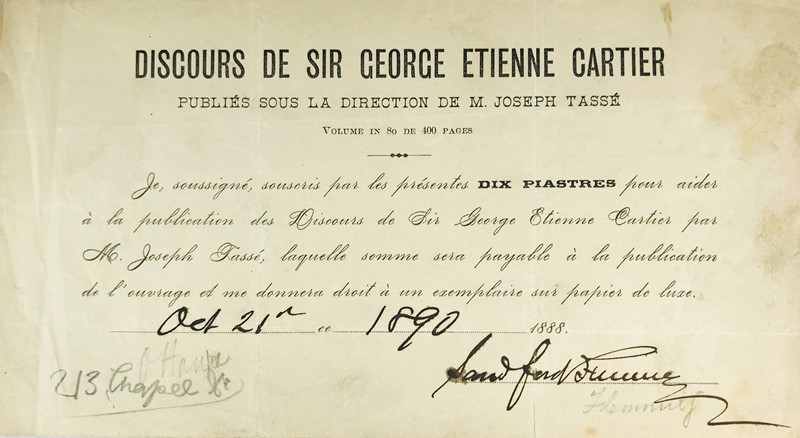 DISCOURS DE SIR GEORGE ETIENNE CARTIER
PUBLIÉS SOUS LA DIRECTION DE M. JOSEPH TASSÉ
VOLUME IN 8o DE 400 PAGES
Je, soussigné, souscris par les présentes DIX PIASTRES pour aider
à la publication des Discours de Sir George Etienne Cartier par
M. Joseph Tassé, laquelle somme sera payable à la publication
de l'ouvrage et me donnera droit à un exemplaire sur papier de luxe.
Oct 21 ce 1890 1888.
Sandford Fleming
Ottawa
213 Chapel St
Flemming